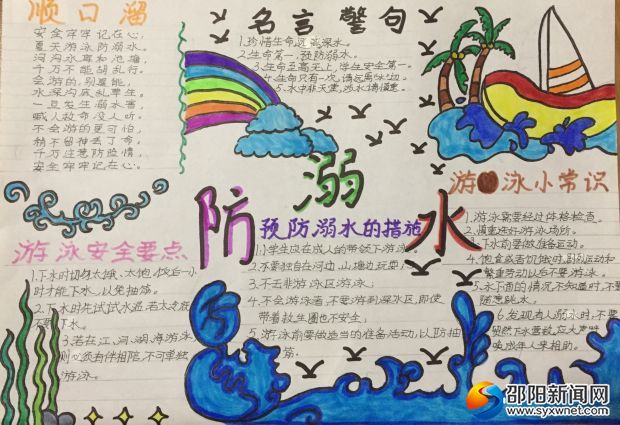 顺口溜
安全牢牢记在心。
夏天游泳防溺水。
河沟水库和池塘,
千万不能胡乱行。
会游的,别逞能,
水深沟底乱草生。
一旦发生溺水害,
喊人救命没人听。
不会游的更可怕,
稍不留神丢了命。
千万注意防险情,
安全牢牢记在心。
名言警句
1.珍惜生命远离深水。
2.生命第一,预防溺水。
3.生命至高无上,学生安全第一。
4.生命只有一次,请远离水边。
5.水中非天堂,涉水请慎重。
防溺水
预防溺水的措施
1.学生应在成人的带领下游泳。
2.不要独自在河边、山塘边玩耍。
3.不去非游泳区游泳。
4.不会游泳者,不要游到深水区,即使
带着救生圈也不安全。
5.游泳前要做适当的准备活动,以防抽
筋。
游泳安全要点
1.下水时切勿太饿、太饱,饭后一小
时才能下水,以免抽筋。
2.下水时先试试水温,若太冷,
不要下水。
3.若在江、河、湖、海游泳,
则必须有伴相陪,不可单独
游泳。
游泳小常识
1.游泳需要经过体格检查。
2.慎重选好游泳场所。
3.下水前要做准备运动。
4.饱食或者饥饿时,剧烈运动和
繁重劳动以后不要游泳。
5.水下面的情况不知道时,不要
随意跳水。
6.发现有人溺水时,不要
贸然下水营救,应大声呼
唤成年人来相助。
邵阳新闻网
www.syxwnet.com